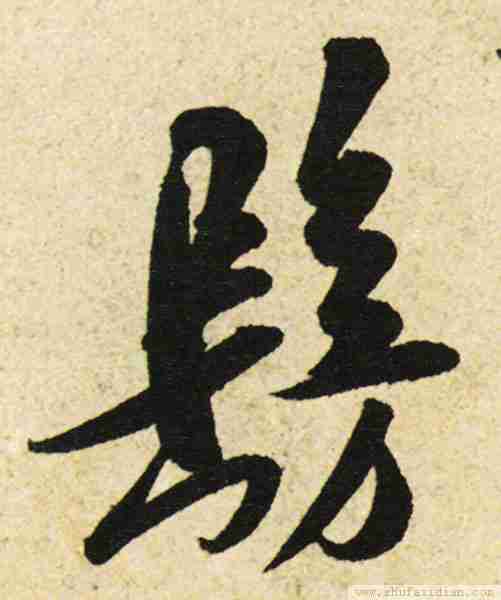 髣
www.shufazidian.com